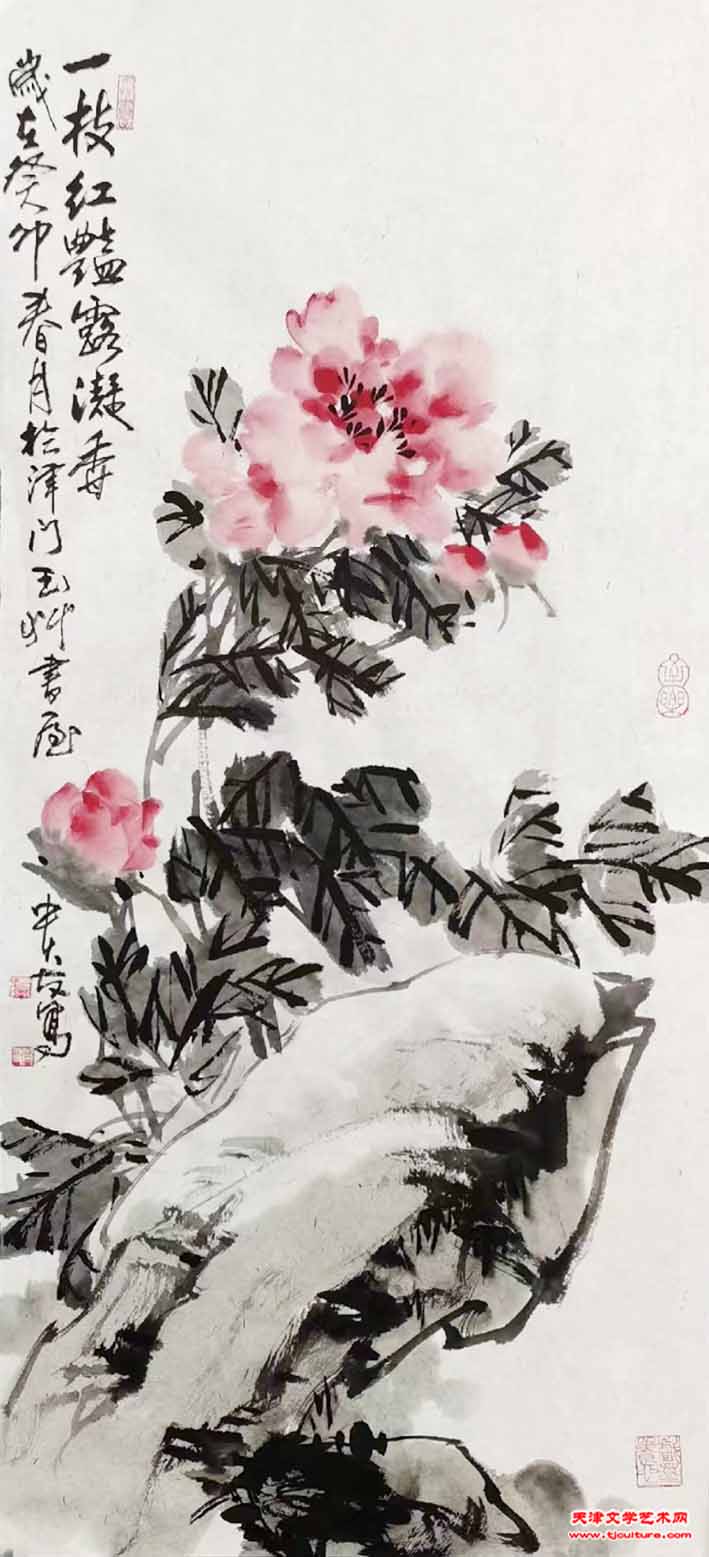 一枝红艳露凝香
岁在癸卯春月於津门玉州書屋
大友寫
天津文学艺术网
www.tjculture.com